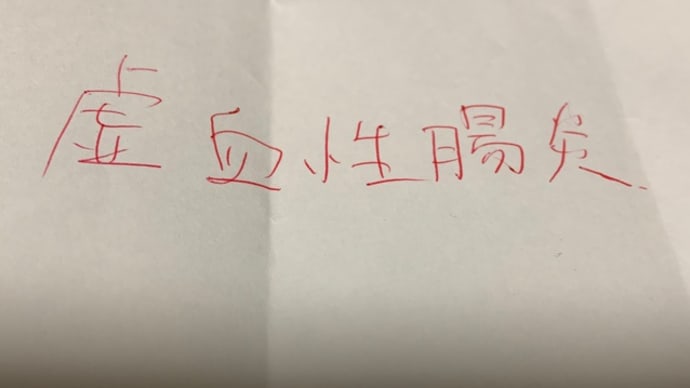 虚血性腸炎